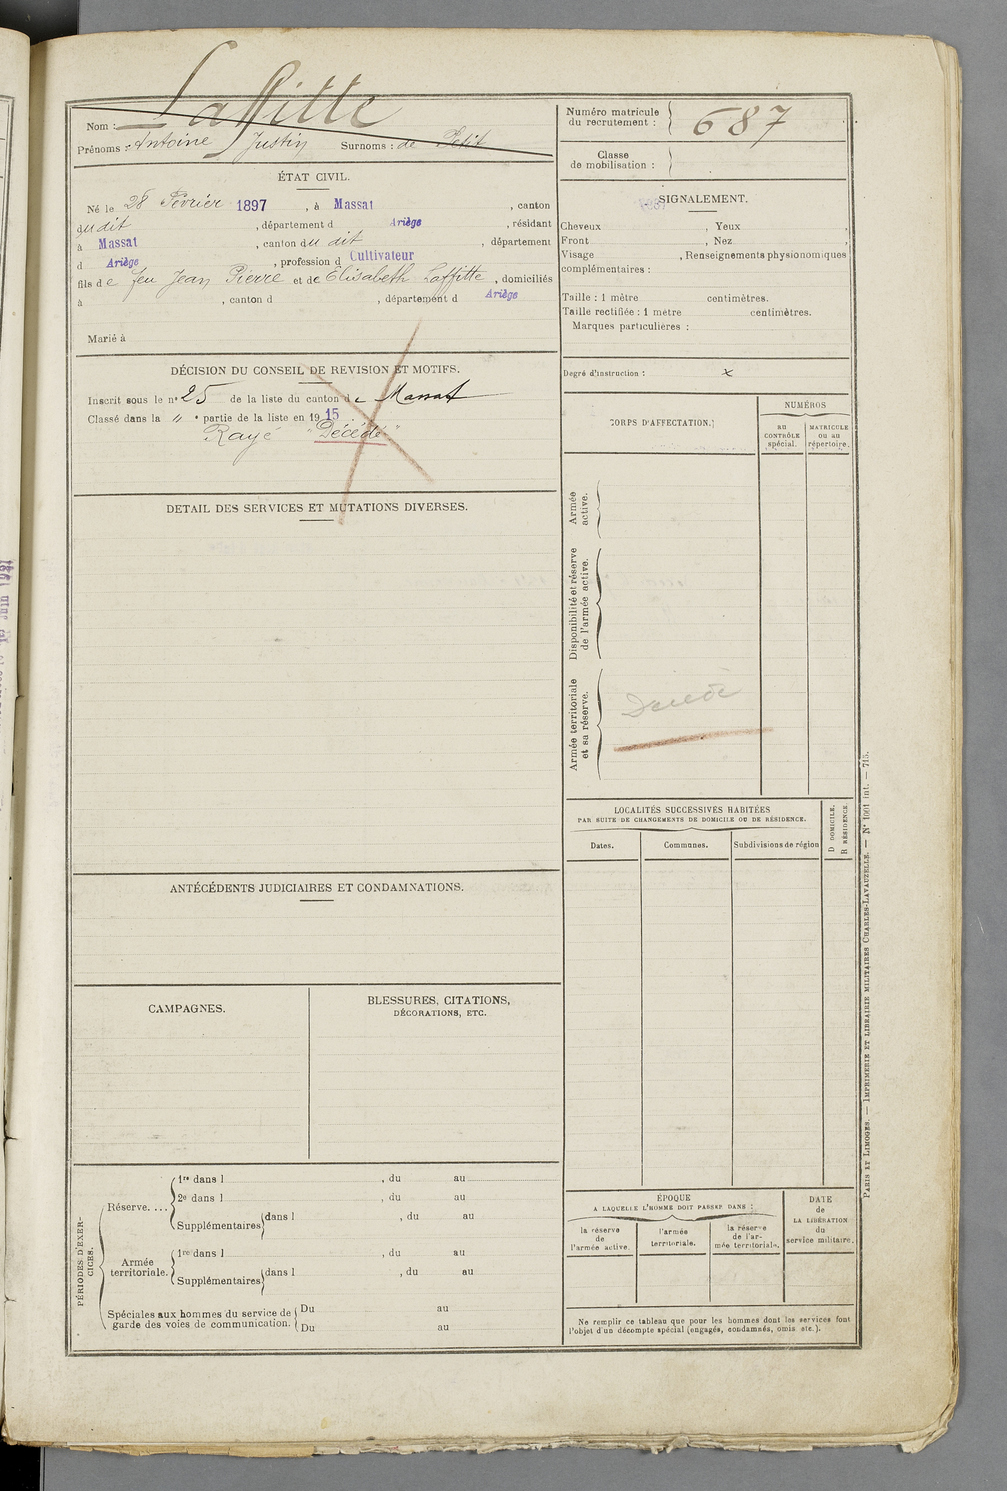 Laffitte
Nom :
Prénoms : Antoine Justin Surnoms : de Petit
ÉTAT CIVIL.
Né le 28 Février 1897, à Massat, canton
du dit, département d Ariège, résidant
à Massat, canton du dit, département
d Ariège, profession d Cultivateur
fils de feu Jean Pierre et de Elisabeth Laffitte, domiciliés
à , canton d , département d Ariège
Marié à
DÉCISION DU CONSEIL DE REVISION ET MOTIFS.
Inscrit sous le n° 25 de la liste du canton de Massat
Classé dans la " e partie de la liste en 1915
Rayé "Décédé"
DETAIL DES SERVICES ET MUTATIONS DIVERSES.
ANTÉCÉDENTS JUDICIAIRES ET CONDAMNATIONS.
CAMPAGNES.
BLESSURES, CITATIONS,
DÉCORATIONS, ETC.
PÉRIODES D'EXER-
CICES.
Réserve. ...
1re dans l , du au
2e dans l , du au
Supplémentaires dans l , du au
Armée
territoriale.
1re dans l , du au
Supplémentaires dans l , du au
Spéciales aux hommes du service de
garde des voies de communication.
Du au
Du au
Numéro matricule
du recrutement : 687
Classe
de mobilisation :
SIGNALEMENT.
Cheveux , Yeux ,
Front , Nez ,
Visage , Renseignements physionomiques
complémentaires :
Taille : 1 mètre centimètres.
Taille rectifiée : 1 mètre centimètres.
Marques particulières :
Degré d'instruction : x
CORPS D'AFFECTATION.
NUMÉROS
AU
CONTRÔLE
spécial.
MATRICULE
OU AU
répertoire.
Armée
active.
Disponibilité et réserve
de l'armée active.
Armée territoriale
et sa réserve.
Décédé
LOCALITÉS SUCCESSIVES HABITÉES
PAR SUITE DE CHANGEMENTS DE DOMICILE OU DE RÉSIDENCE.
D DOMICILE.
R RÉSIDENCE.
Dates. Communes. Subdivisions de région
ÉPOQUE
A LAQUELLE L'HOMME DOIT PASSER DANS :
la réserve
de
l'armée active.
l'armée
territoriale.
la réserve
de l'ar-
mée territoriale.
DATE
de
LA LIBÉRATION
du
service militaire.
Ne remplir ce tableau que pour les hommes dont les services font
l'objet d'un décompte spécial (engagés, condamnés, omis etc.).
PARIS ET LIMOGES. — IMPRIMERIE ET LIBRAIRIE MILITAIRES CHARLES-LAVAUZELLE. — N° 1001 int. — 715.